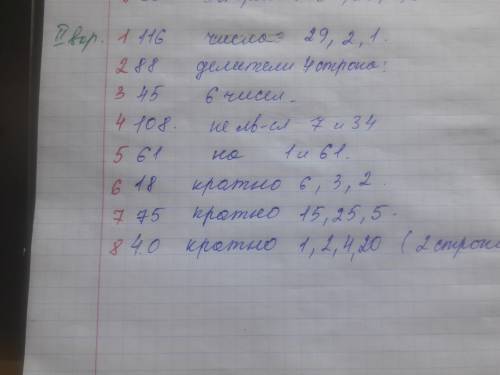 II вар. 1 116 числа: 29, 2, 1.
2 88 делители 4 строка:
3 45 6 чисел.
4 108. не яв-ся 7 и 34
5 61 на 1 и 61.
6 18 кратно 6, 3, 2.
7 75 кратно 15, 25, 5.
8 40 кратно 1, 2, 4, 20 (2 строка